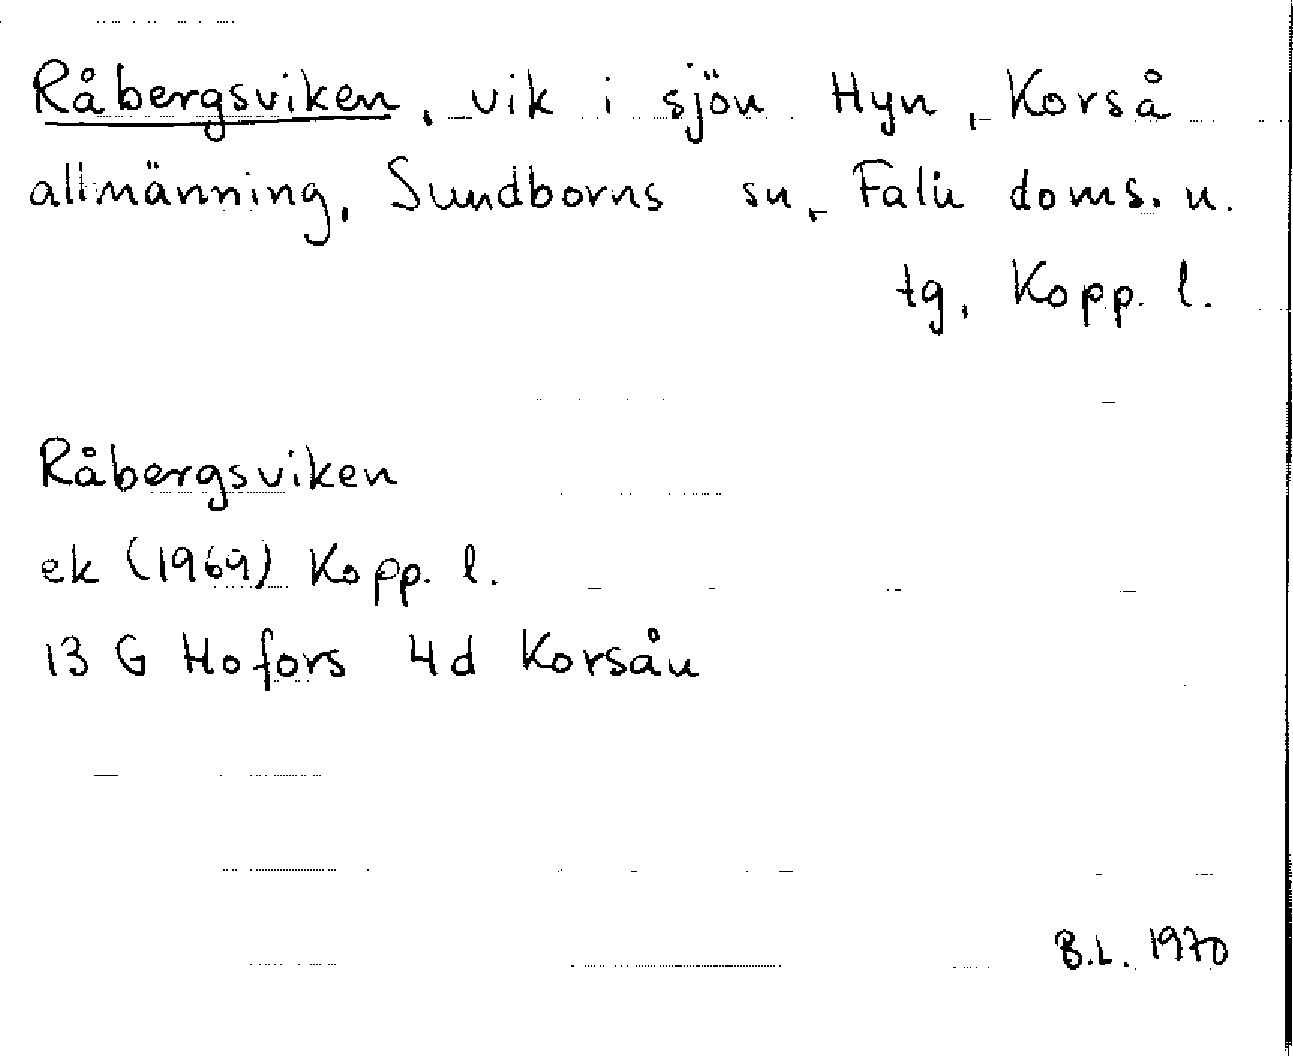 Råbergsviken, vik i sjön Hyn, Korså
allmänning, Sundborns sn, Falu doms. n.
tg, Kopp. l.
Råbergsviken
ek (1969) Kopp. l.
13 G Hofors 4d Korsån
B.L. 1970